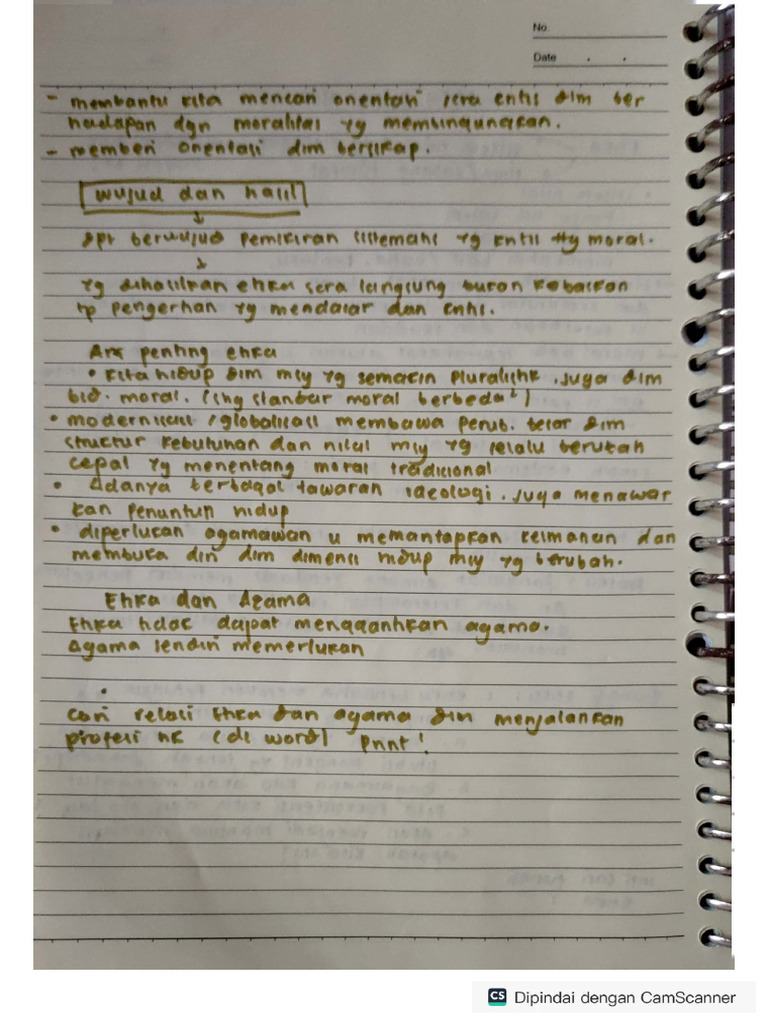 No.
Date
- membantu kita mencari orientasi secra kritis dlm ber
hadapan dgn moralitas yg membingungkan.
- memberi orientasi dlm bersikap.
wujud dan hasil
↓
dpt berwujud pemikiran sistematis yg kritis ttg moral.
↓
yg dihasilkan etika secra langsung bukan kebaikan
tp pengertian yg mendasar dan kritis.
Arti penting etika
• kita hidup dlm msy yg semakin pluralistik. juga dlm
bid. moral. (shg standar moral berbeda²)
• modernisasi / globalisasi membawa perub. besar dlm
struktur kebutuhan dan nilai msy yg selalu berubah
cepat yg menentang moral tradisional
• Adanya berbagai tawaran ideologi. juga menawar
kan penuntun hidup
• diperlukan agamawan u memantapkan keimanan dan
membuka diri dlm dimensi hidup msy yg berubah.
Etika dan Agama
Etika tidak dapat menggantikan agama.
Agama sendiri memerlukan
•
cari relasi Etika dan agama dlm menjalankan
profesi (di word) print!
CS Dipindai dengan CamScanner